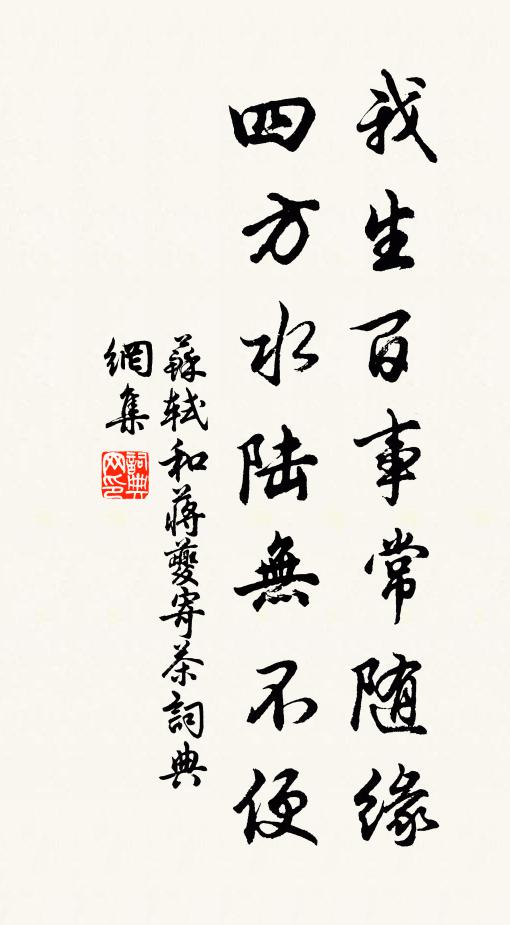 我生百事常随緣
四方水陆無不便
蘇軾和蔣夔寄茶詞典
網集
詞典网印